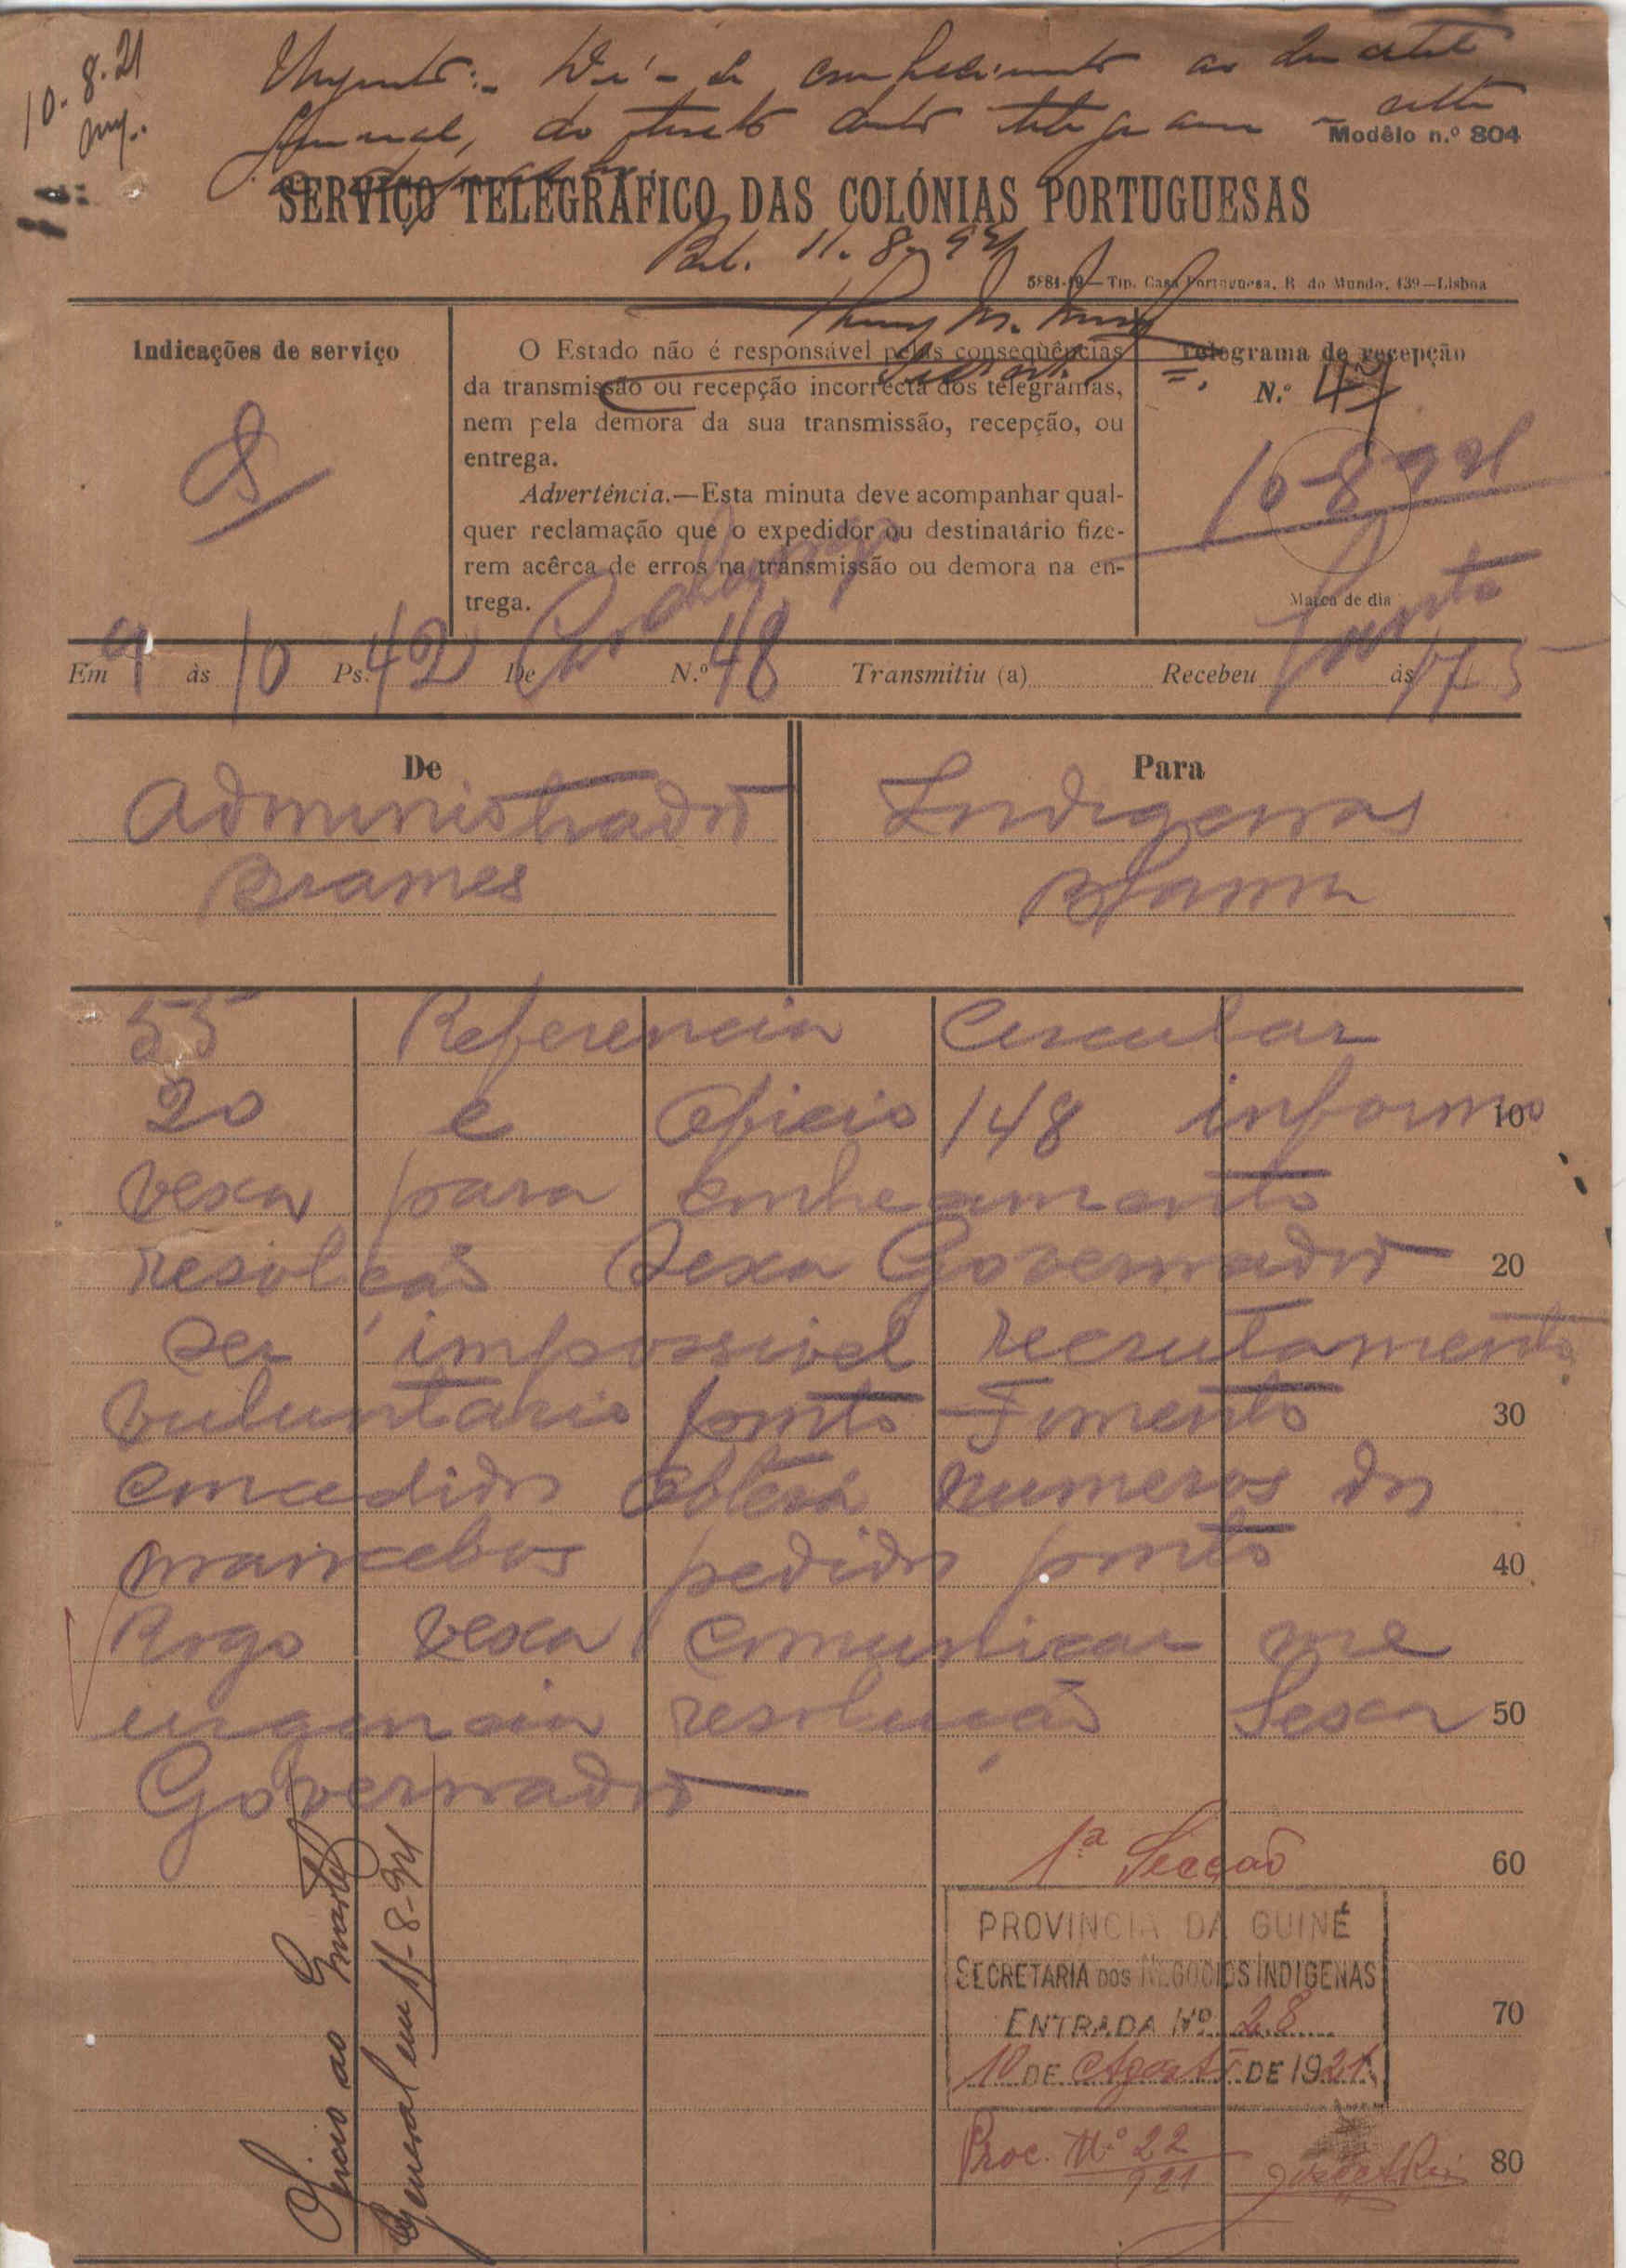 10.8.21
Urgente:- Dê-se conhecimento ao
do telegrama
Modêlo n.º 804
SERVIÇO TELEGRÁFICO DAS COLÓNIAS PORTUGUESAS
Bol. 11.8.921
5884-19—Tip. Casa Portuguesa, R. do Mundo, 139—Lisboa
Indicações de serviço
S
O Estado não é responsável pelas conseqüências
da transmissão ou recepção incorrecta dos telegramas,
nem pela demora da sua transmissão, recepção, ou
entrega.
Advertência.—Esta minuta deve acompanhar qual-
quer reclamação que o expedidor ou destinatário fize-
rem acêrca de erros na transmissão ou demora na en-
trega.
Telegrama de recepção
N.º 47
10-8-921
Marca de dia
Em 9 às 10 Ps. 42 De N.º 48 Transmitiu (a) Recebeu às 17,5
De
Administrador
Brames
Para
Indigenas
Bolama
55 Referencia Circular
20 e oficio 148 informo 10
vexa para conhecimento
resolução Sexa Governador 20
ser impossivel recrutamento
voluntario ponto Fomento 30
concedido obterá numeros dos
mancebos pedidos ponto 40
Rogo vexa comunicar me
urgencia resolução Sexa 50
Governador
1ª Secção
60
PROVINCIA DA GUINÉ
SECRETARIA DOS NEGOCIOS INDIGENAS
ENTRADA Nº 28
70
10 DE Agosto DE 1921
Proc. Nº 22
921
80
Oficio ao Quartel
General em 11-8-921